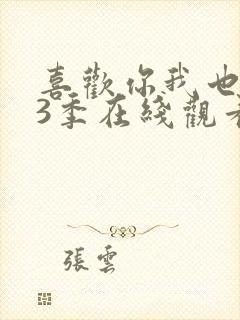 喜歡你我也
3季在綫觀看
張雲